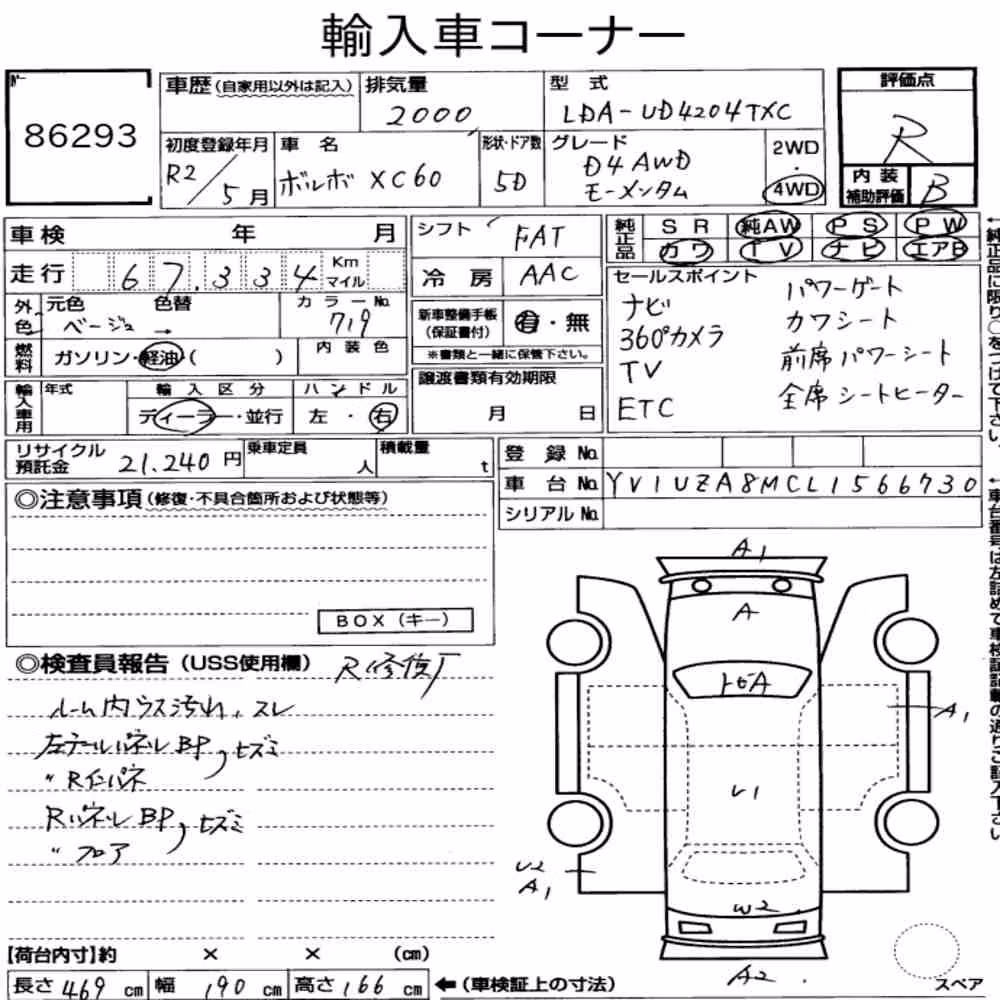 輸入車コーナー
86293
車歴 (自家用以外は記入)
排気量
2000
型式
LDA-UD4204TXC
評価点
R
初度登録年月
R2/5月
車名
ボルボ XC60
形状・ドア数
5D
グレード
D4 AWD
モーメンタム
2WD
・
4WD
内装
補助評価
B
車検 年 月
シフト
FAT
純正品
SR 純AW PS PW
カワ TV ナビ エアB
走行 67,334 Km マイル
冷房
AAC
セールスポイント
ナビ
パワーゲート
360°カメラ
カワシート
TV
前席パワーシート
ETC
全席シートヒーター
外色
元色 色替
ベージュ →
カラーNo.
719
新車整備手帳
(保証書付)
有・無
※書類と一緒に保管下さい。
燃料
ガソリン・軽油・( )
内装色
譲渡書類有効期限
月 日
輸入車用
年式
輸入区分
ディーラー・並行
ハンドル
左・右
リサイクル
預託金
21,240円
乗車定員
人
積載量
t
登録No.
車台No.
YV1UZA8MCL1566730
シリアルNo.
◎注意事項 (修復・不具合箇所および状態等)
BOX (キー)
◎検査員報告 (USS使用欄)
R修復歴
ルーム内ウス汚れ、スレ
左テールパネルBP,ヒズミ
〃Rインパネ
RパネルBP,ヒズミ
〃フロア
A1
A
トビA
A1
U1
U2
A1
W2
A2
スペア
【荷台内寸】約 × × (cm)
長さ 469 cm 幅 190 cm 高さ 166 cm
←(車検証上の寸法)
←純正品に限り○をつけて下さい。